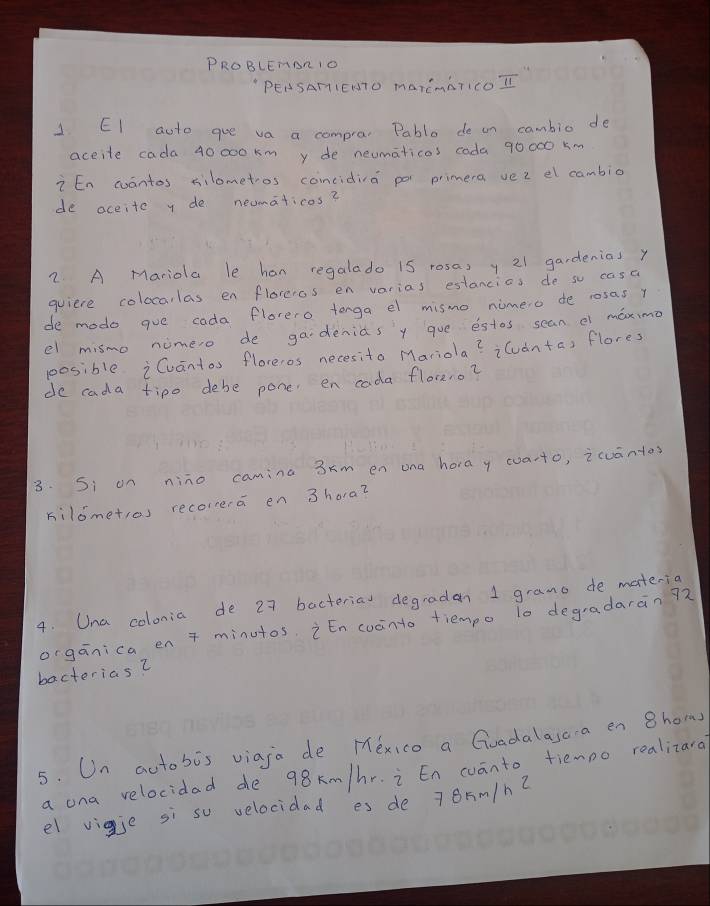 PROBLEMARIO
"PENSAMIENTO MATEMÁTICO II"
1. El auto que va a comprar Pablo de un cambio de
aceite cada 40 000 km y de neumáticos cada 90 000 km
¿En cuántos kilometros coincidirá por primera vez el cambio
de aceite y de neumáticos?
2. A Mariola le han regalado 15 rosas y 21 gardenias y
quiere colocarlas en floreros en varias estancias de su casa
de modo que cada florero tenga el mismo número de rosas y
el mismo número de gardenias y que éstos sean el máximo
posible. ¿Cuántos floreros necesita Mariola? ¿Cuántas flores
de cada tipo debe poner en cada florero?
3. Si un niño camina 3km en una hora y cuarto, ¿cuántos
kilómetros recorrerá en 3 hora?
4. Una colonia de 27 bacterias degradan 1 gramo de materia
orgánica en 7 minutos. ¿En cuánto tiempo lo degradarán 72
bacterias?
5. Un autobús viaja de México a Guadalajara en 8 horas
a una velocidad de 98 km/hr. ¿En cuánto tiempo realizará
el viaje si su velocidad es de 78km/h?